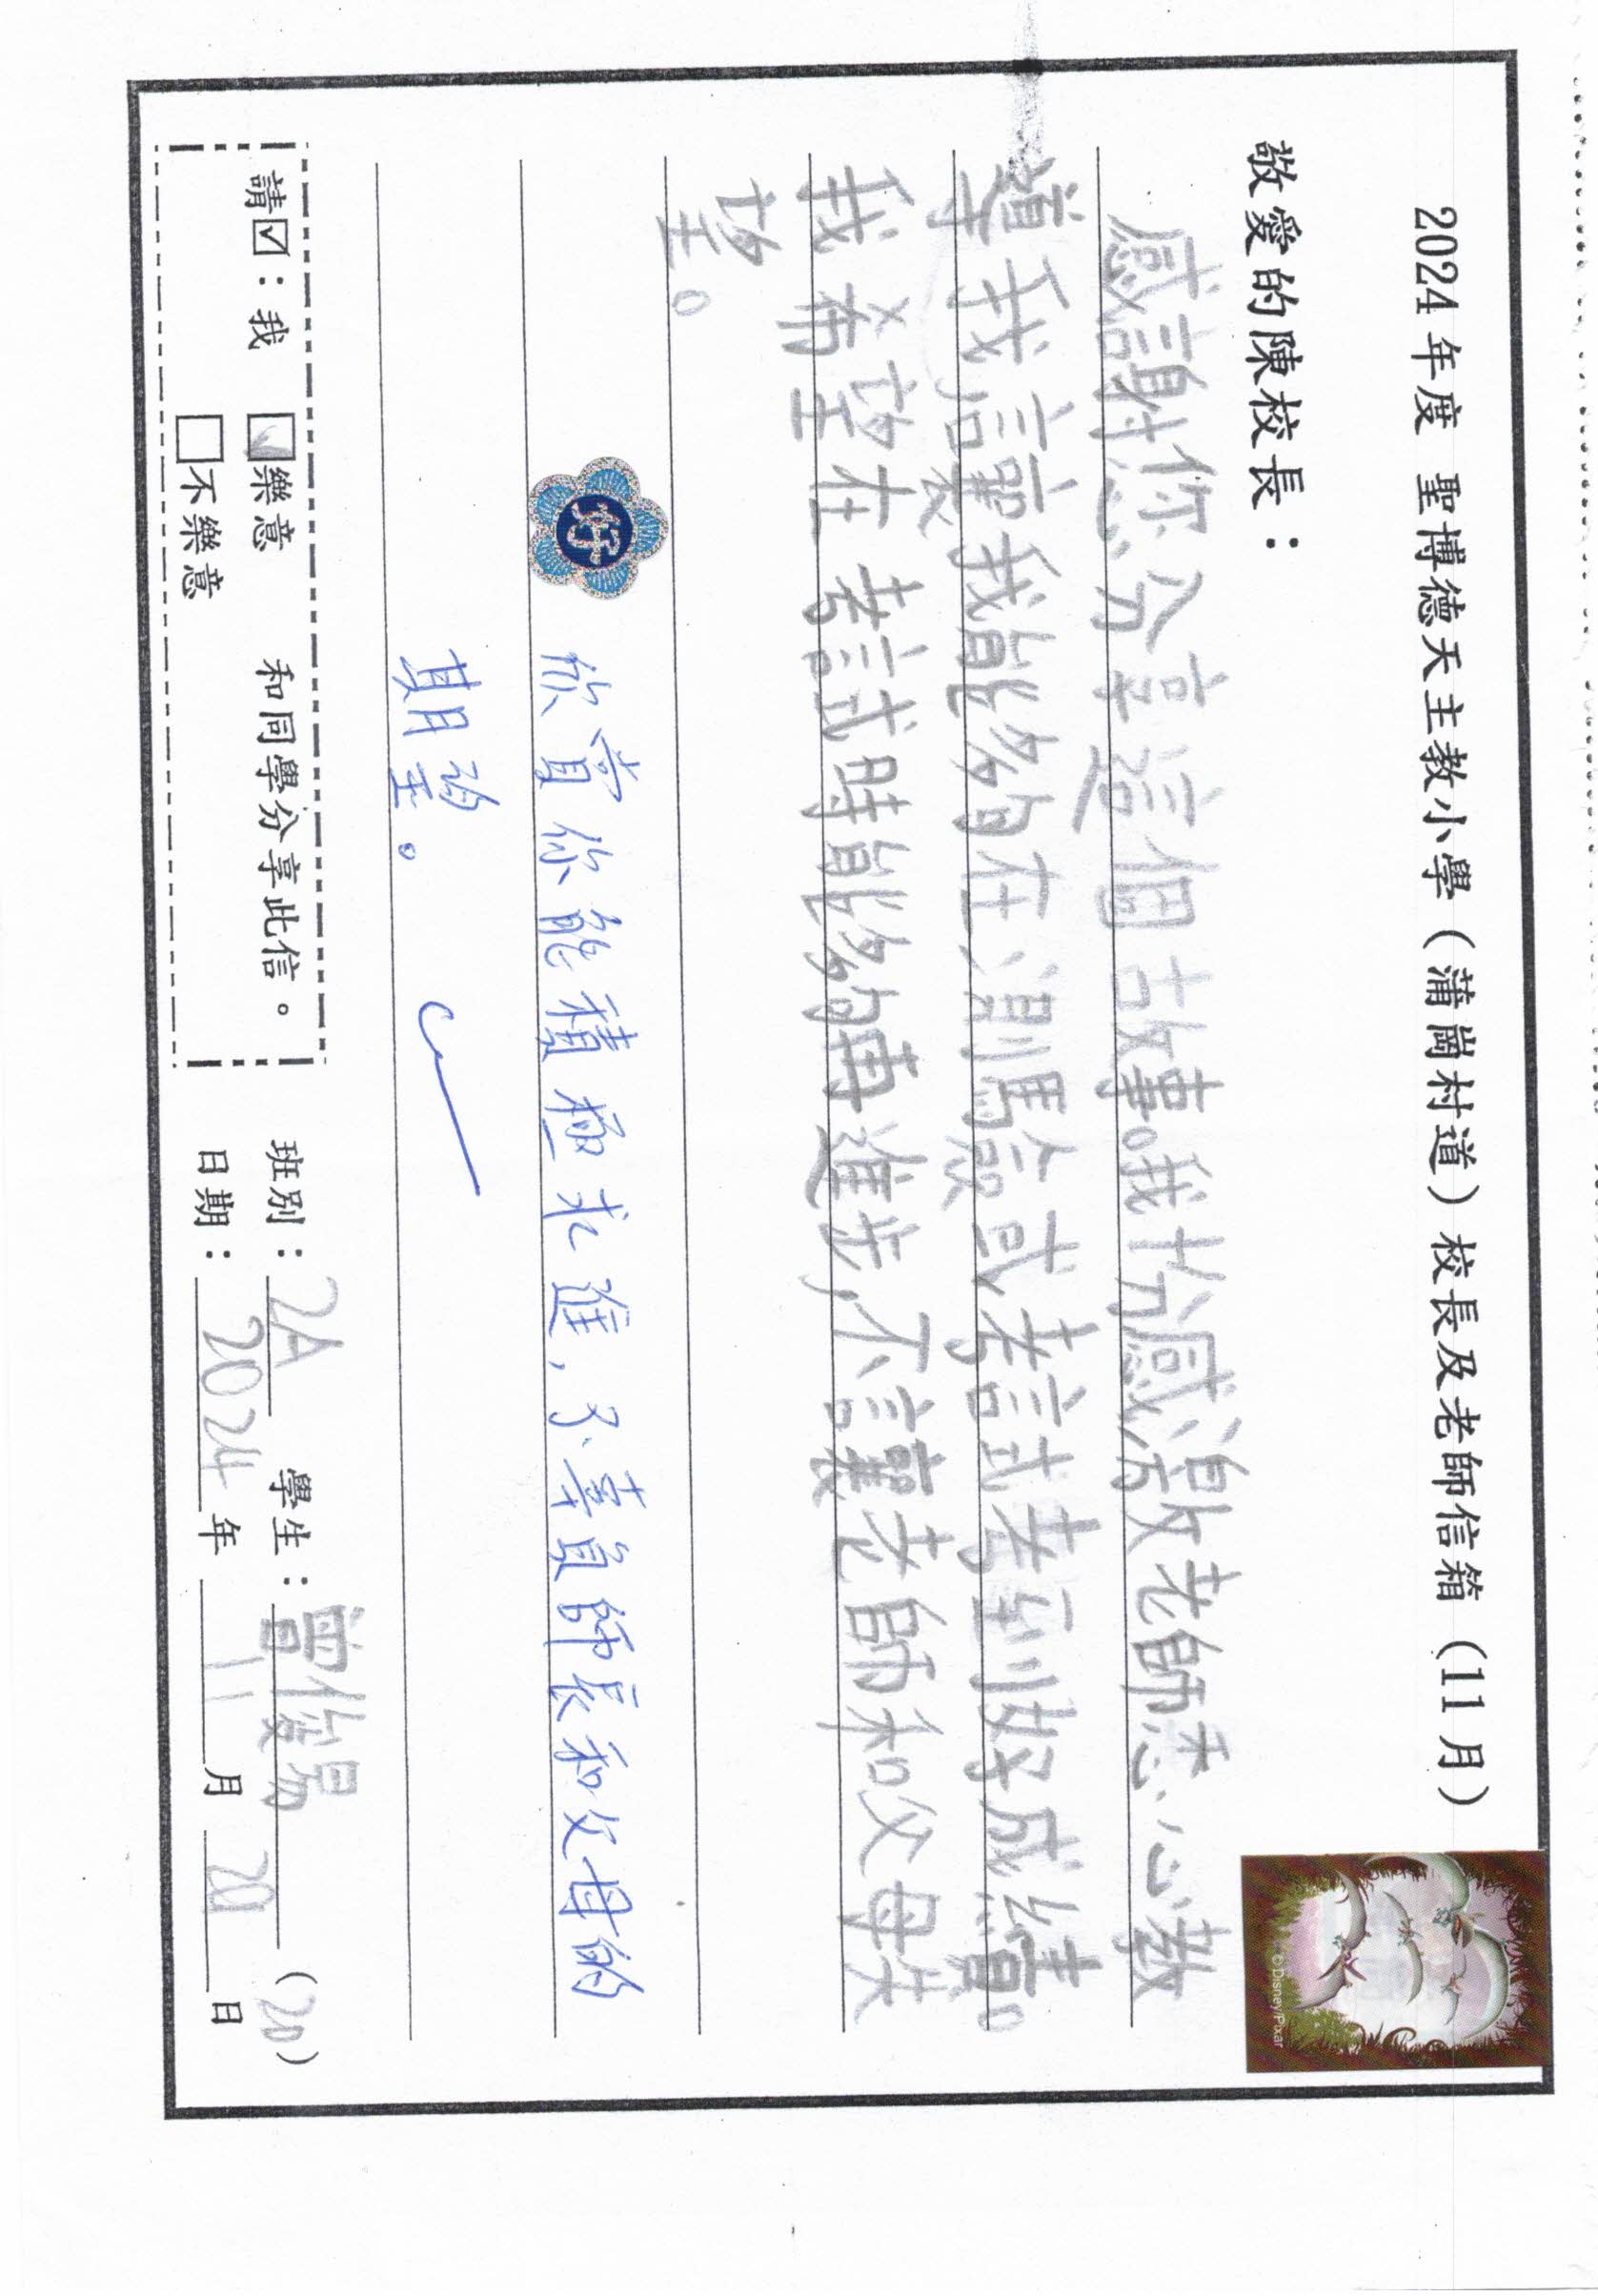 2024年度 聖博德天主教小學（蒲崗村道）校長及老師信箱（11月）
© Disney/Pixar
敬愛的陳校長：
感謝您分享這個故事。我十分感激老師悉心教
導我,讓我能夠在測驗或考試考到好成績。
我希望在考試時能夠再進步,不讓老師和父母失
望。
好
欣賞你能積極求進,不辜負師長和父母的
期望。
請☑：我 ☑樂意 和同學分享此信。
☐不樂意
班別：2A 學生：曾俊昜（20）
日期：2024年11月20日